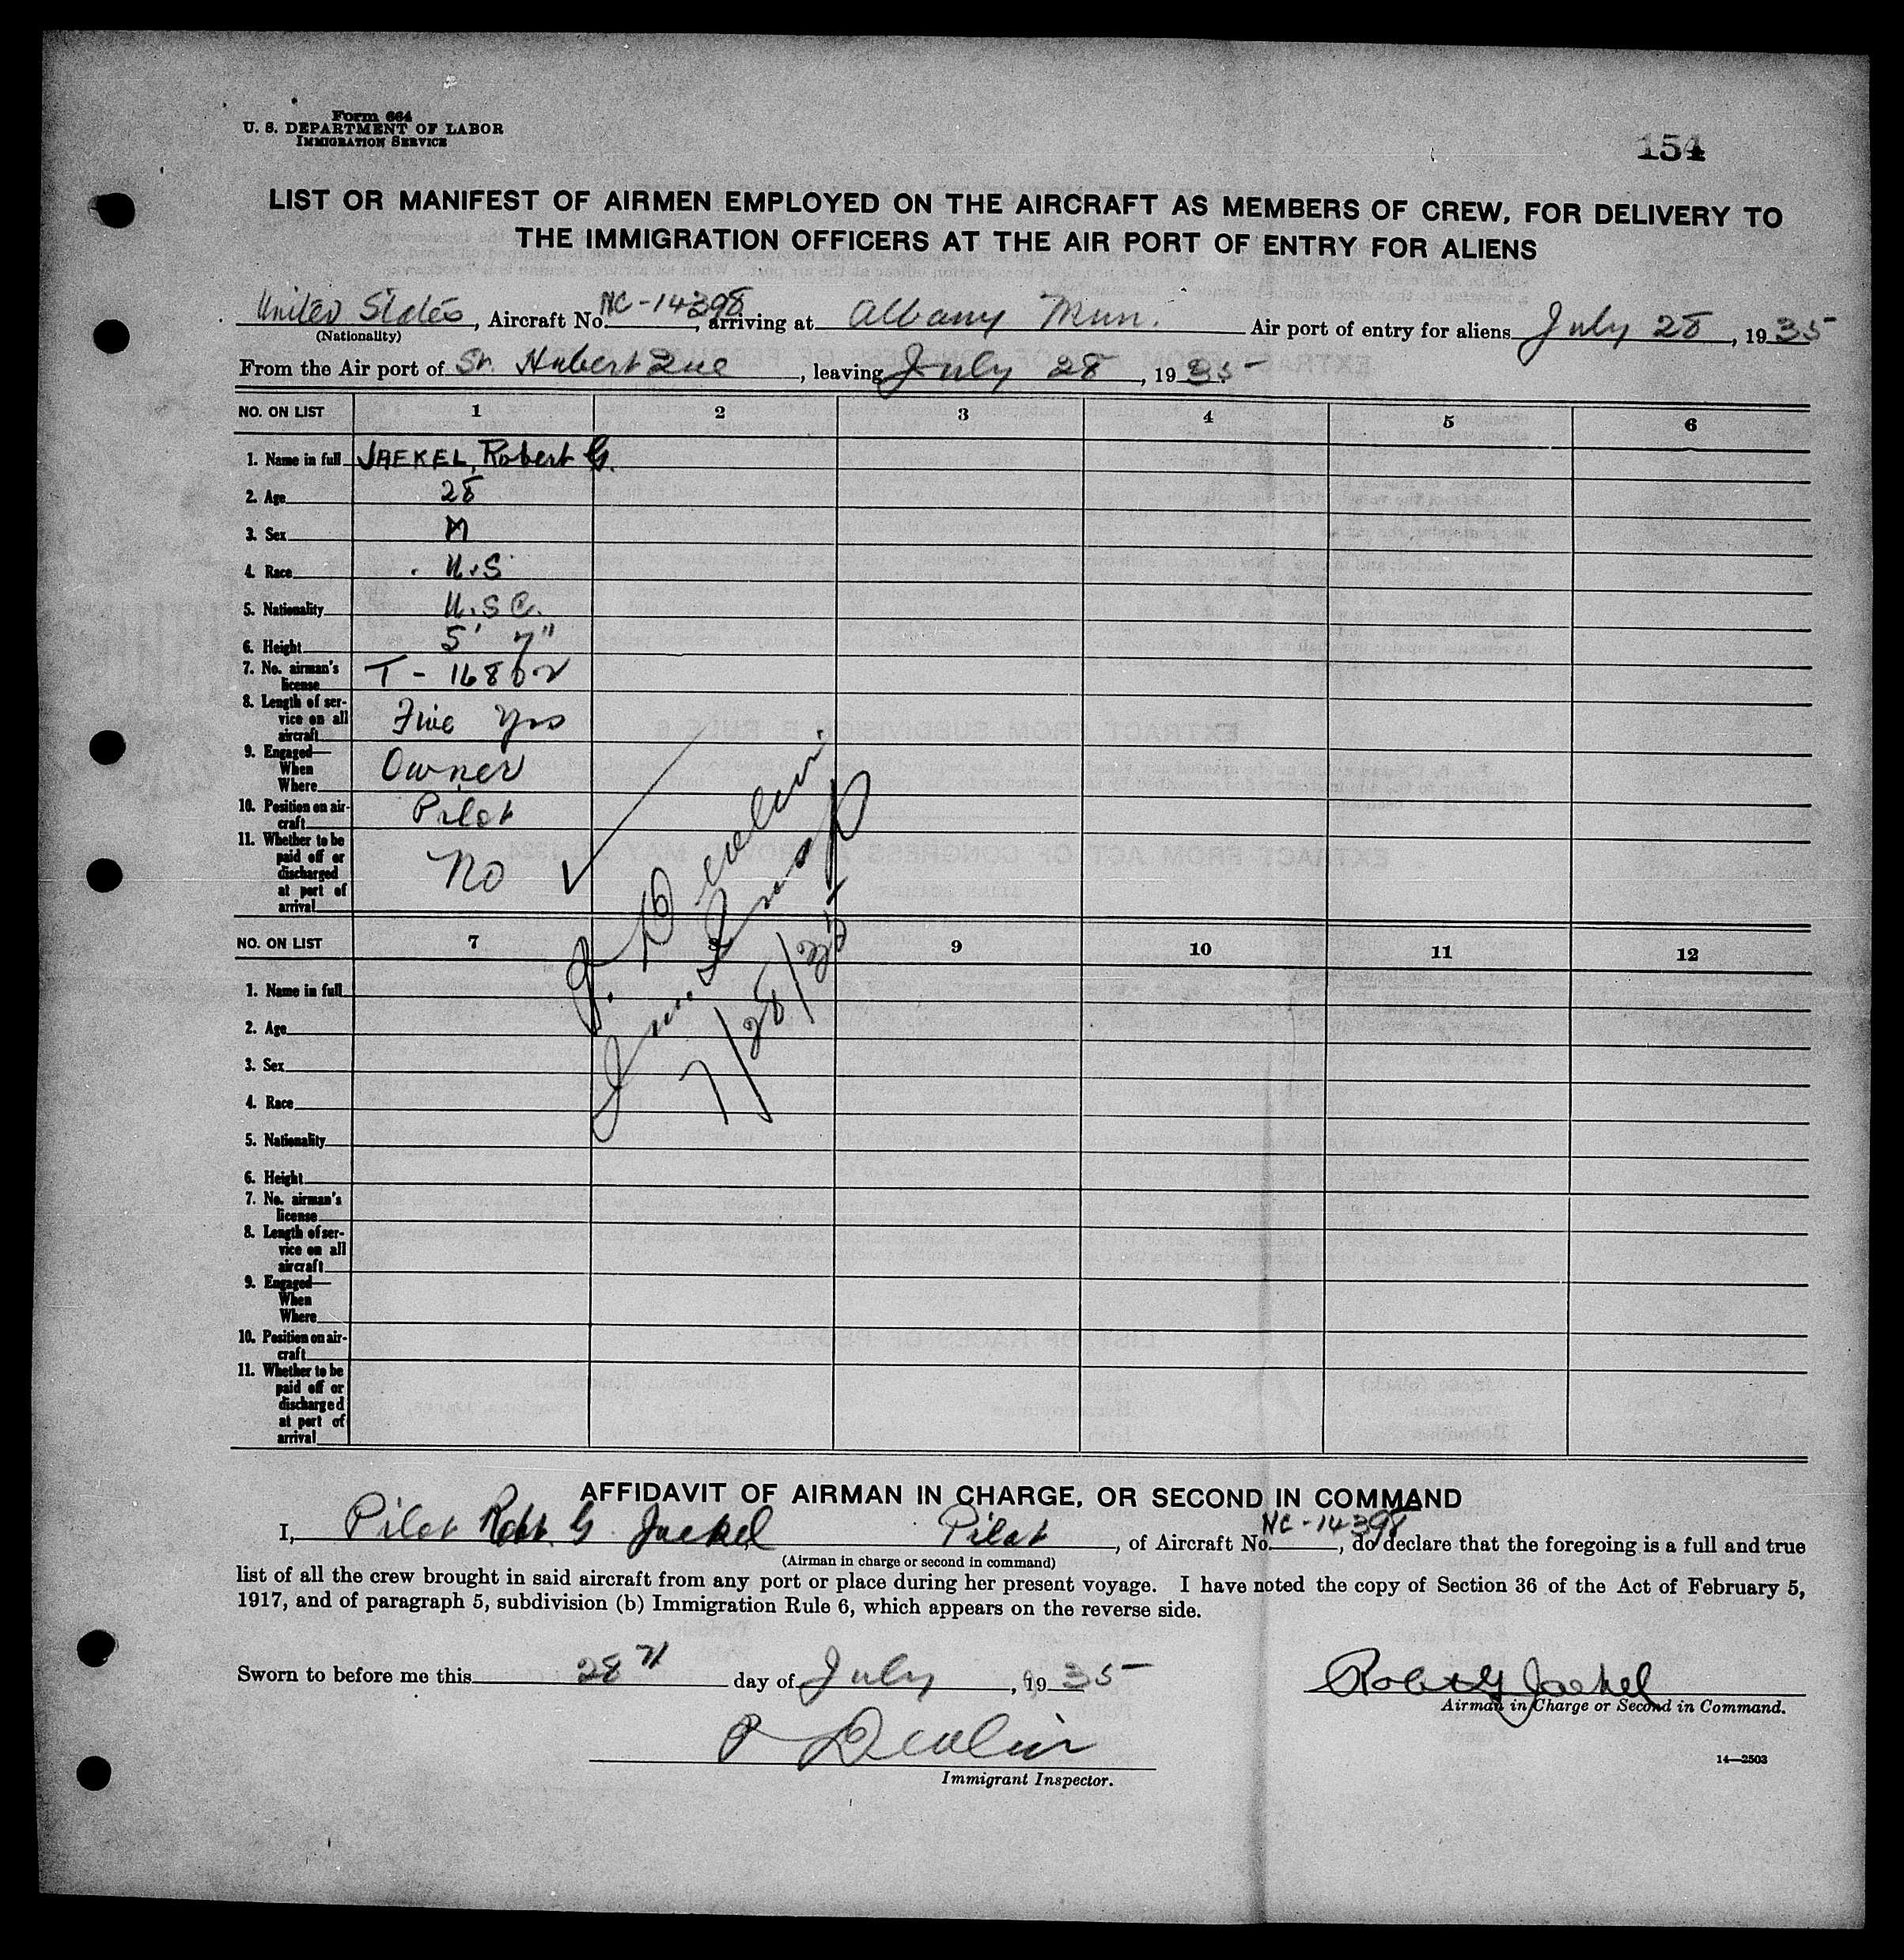 Form 664
U. S. DEPARTMENT OF LABOR
IMMIGRATION SERVICE
154
LIST OR MANIFEST OF AIRMEN EMPLOYED ON THE AIRCRAFT AS MEMBERS OF CREW, FOR DELIVERY TO
THE IMMIGRATION OFFICERS AT THE AIR PORT OF ENTRY FOR ALIENS
United States, Aircraft No. NC-14398, arriving at Albany Mun. Air port of entry for aliens July 28, 1935
(Nationality)
From the Air port of St. Hubert Que, leaving July 28, 1935
NO. ON LIST 1 2 3 4 5 6
1. Name in full JAEKEL, Robert G.
2. Age 28
3. Sex M
4. Race U.S.
5. Nationality U.S.C.
6. Height 5' 7"
7. No. airman's
license T-16802
8. Length of ser-
vice on all
aircraft Five Yrs
9. Engaged—
When
Where Owner
10. Position on air-
craft Pilot
11. Whether to be
paid off or
discharged
at port of
arrival No
P. Devlin
Imm. Insp
7/28/35
NO. ON LIST 7 8 9 10 11 12
1. Name in full
2. Age
3. Sex
4. Race
5. Nationality
6. Height
7. No. airman's
license
8. Length of ser-
vice on all
aircraft
9. Engaged—
When
Where
10. Position on air-
craft
11. Whether to be
paid off or
discharged
at port of
arrival
AFFIDAVIT OF AIRMAN IN CHARGE, OR SECOND IN COMMAND
I, Pilot Robt. G. Jaekel Pilot, of Aircraft No. NC-14398, do declare that the foregoing is a full and true
(Airman in charge or second in command)
list of all the crew brought in said aircraft from any port or place during her present voyage. I have noted the copy of Section 36 of the Act of February 5,
1917, and of paragraph 5, subdivision (b) Immigration Rule 6, which appears on the reverse side.
Sworn to before me this 28th day of July, 1935
Robert G Jaekel
Airman in Charge or Second in Command.
P Devlin
Immigrant Inspector.
14—2503